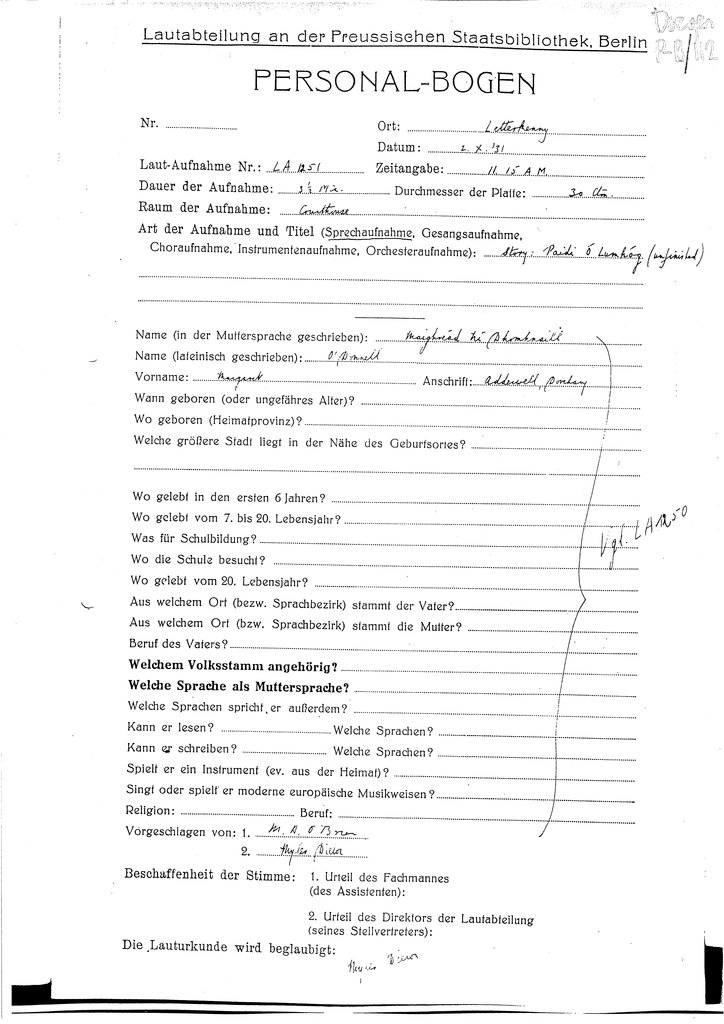 Doegen
Lautabteilung an der Preussischen Staatsbibliothek, Berlin
PERSONAL-BOGEN
Nr.
Ort: Letterkenny
Datum: 2. X. '31
Laut-Aufnahme Nr.: LA 1251 Zeitangabe: 11.15 A M.
Dauer der Aufnahme: 3½ Min. Durchmesser der Platte: 30 cm.
Raum der Aufnahme: Courthouse
Art der Aufnahme und Titel (Sprechaufnahme, Gesangsaufnahme,
Choraufnahme, Instrumentenaufnahme, Orchesteraufnahme): Story: Paidí Ó Lumhóg (unfinished)
Name (in der Muttersprache geschrieben): Maighréad Ní Dhomhnaill
Name (lateinisch geschrieben): O'Donnell
Vorname: Margaret Anschrift:
Wann geboren (oder ungefähres Alter)?
Wo geboren (Heimatprovinz)?
Welche größere Stadt liegt in der Nähe des Geburtsortes?
Wo gelebt in den ersten 6 Jahren?
Wo gelebt vom 7. bis 20. Lebensjahr?
Vgl. LA 1250
Was für Schulbildung?
Wo die Schule besucht?
Wo gelebt vom 20. Lebensjahr?
Aus welchem Ort (bezw. Sprachbezirk) stammt der Vater?
Aus welchem Ort (bzw. Sprachbezirk) stammt die Mutter?
Beruf des Vaters?
Welchem Volksstamm angehörig?
Welche Sprache als Muttersprache?
Welche Sprachen spricht er außerdem?
Kann er lesen? Welche Sprachen?
Kann er schreiben? Welche Sprachen?
Spielt er ein Instrument (ev. aus der Heimat)?
Singt oder spielt er moderne europäische Musikweisen?
Religion: Beruf:
Vorgeschlagen von: 1. M. A. O'Brien
2. Myles Dillon
Beschaffenheit der Stimme: 1. Urteil des Fachmannes
(des Assistenten):
2. Urteil des Direktors der Lautabteilung
(seines Stellvertreters):
Die Lauturkunde wird beglaubigt:
Myles Dillon